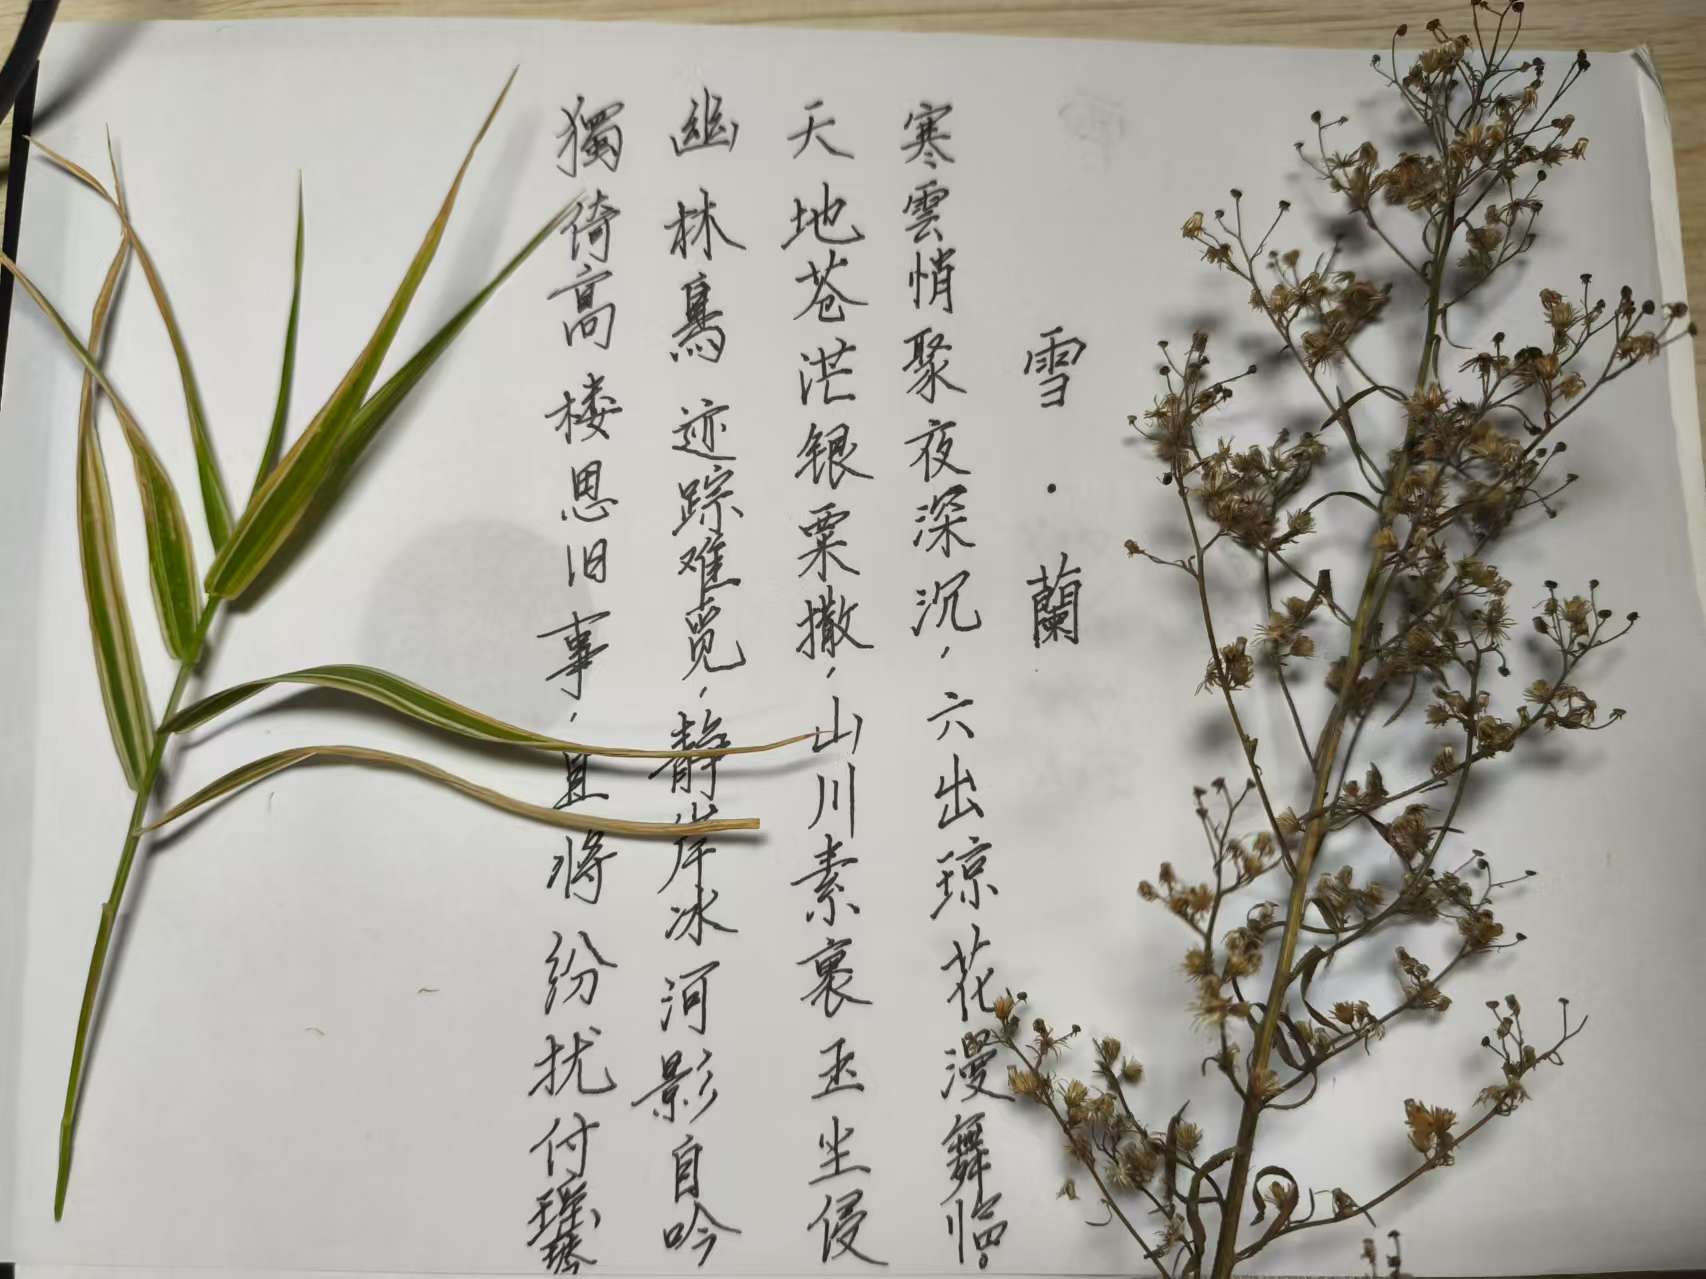 雪·蘭
寒雲悄聚夜深沉,六出琼花漫舞臨。
天地苍茫银粟撒,山川素裹玉尘侵
幽林鳥迹踪难觅,静岸冰河影自吟
獨倚高楼思旧事,且将纷扰付瑶琴